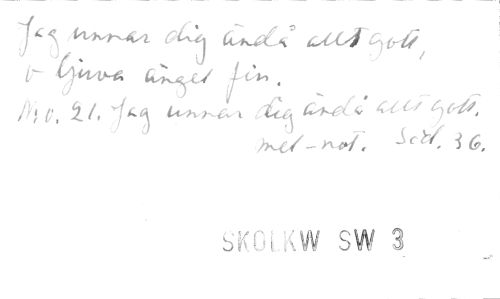 Jag unnar dig ändå allt gott,
o ljuva ängel fin.
No. 21. Jag unnar dig ändå allt gott.
mel-not. Sid. 36.
SKOLKW SW 3